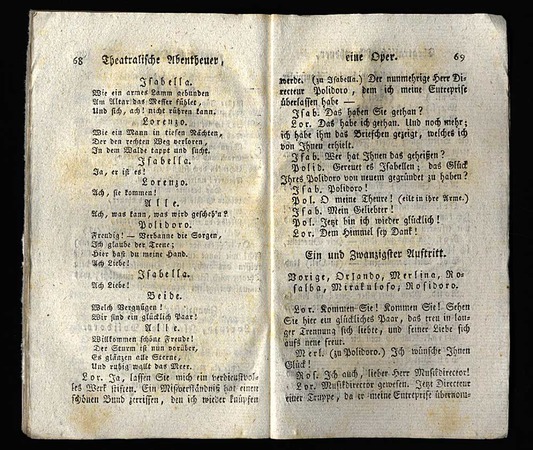 68 Theatralische Abentheuer,
Isabella.
Wie ein armes Lamm gebunden
Am Altar das Messer fühlet,
Und sich, ach! nicht rühren kann.
Lorenzo.
Wie ein Mann in tiefen Nächten,
Der den rechten Weg verloren,
In dem Walde tappt und sucht.
Isabella.
Ja, er ist es!
Lorenzo.
Ach, sie kommen!
Alle.
Ach, was kann, was wird gescheh'n?
Polidoro.
Freudig! — Verbanne die Sorgen,
Ich glaube der Treue;
Hier hast du meine Hand.
Ach Liebe!
Isabella.
Ach Liebe!
Beide.
Welch Vergnügen!
Wir sind ein glücklich Paar!
Alle.
Willkommen schöne Freude!
Der Sturm ist nun vorüber,
Es glänzen alle Sterne,
Und ruhig wallt das Meer.
Lor. Ja, lassen Sie mich ein verdienstvol-
les Werk stiften. Ein Misverständniß hat einen
schönen Bund zerrissen, den ich wieder knüpfen
eine Oper. 69
werde. (zu Isabella.) Der nunmehrige Herr Di-
recteur Polidoro, dem ich meine Entreprise
überlassen habe —
Isab. Das haben Sie gethan?
Lor. Das habe ich gethan. Und noch mehr;
ich habe ihm das Brieschen gezeigt, welches ich
von Ihnen erhielt.
Isab. Wer hat Ihnen das geheißen?
Polid. Gereuet es Isabellen; das Glück
Ihres Polidoro von neuem gegründet zu haben?
Isab. Polidoro!
Pol. O meine Theure! (eilt in ihre Arme.)
Isab. Mein Geliebter!
Pol. Jetzt bin ich wieder glücklich!
Lor. Dem Himmel sey Dank!
Ein und Zwanzigster Auftritt.
Vorige, Orlando, Merlina, Ro-
salba, Mirakuloso, Rosidoro.
Lor. Kommen Sie! Kommen Sie! Sehen
Sie hier ein glückliches Paar, das treu in lan-
ger Trennung sich liebte, und seiner Liebe sich
aufs neue freut.
Merl. (zu Polidoro.) Ich wünsche Ihnen
Glück!
Ros. Ich auch, lieber Herr Musikdirector!
Lor. Musikdirector gewesen. Jetzt Directeur
einer Truppe, da er meine Entreprise übernom-